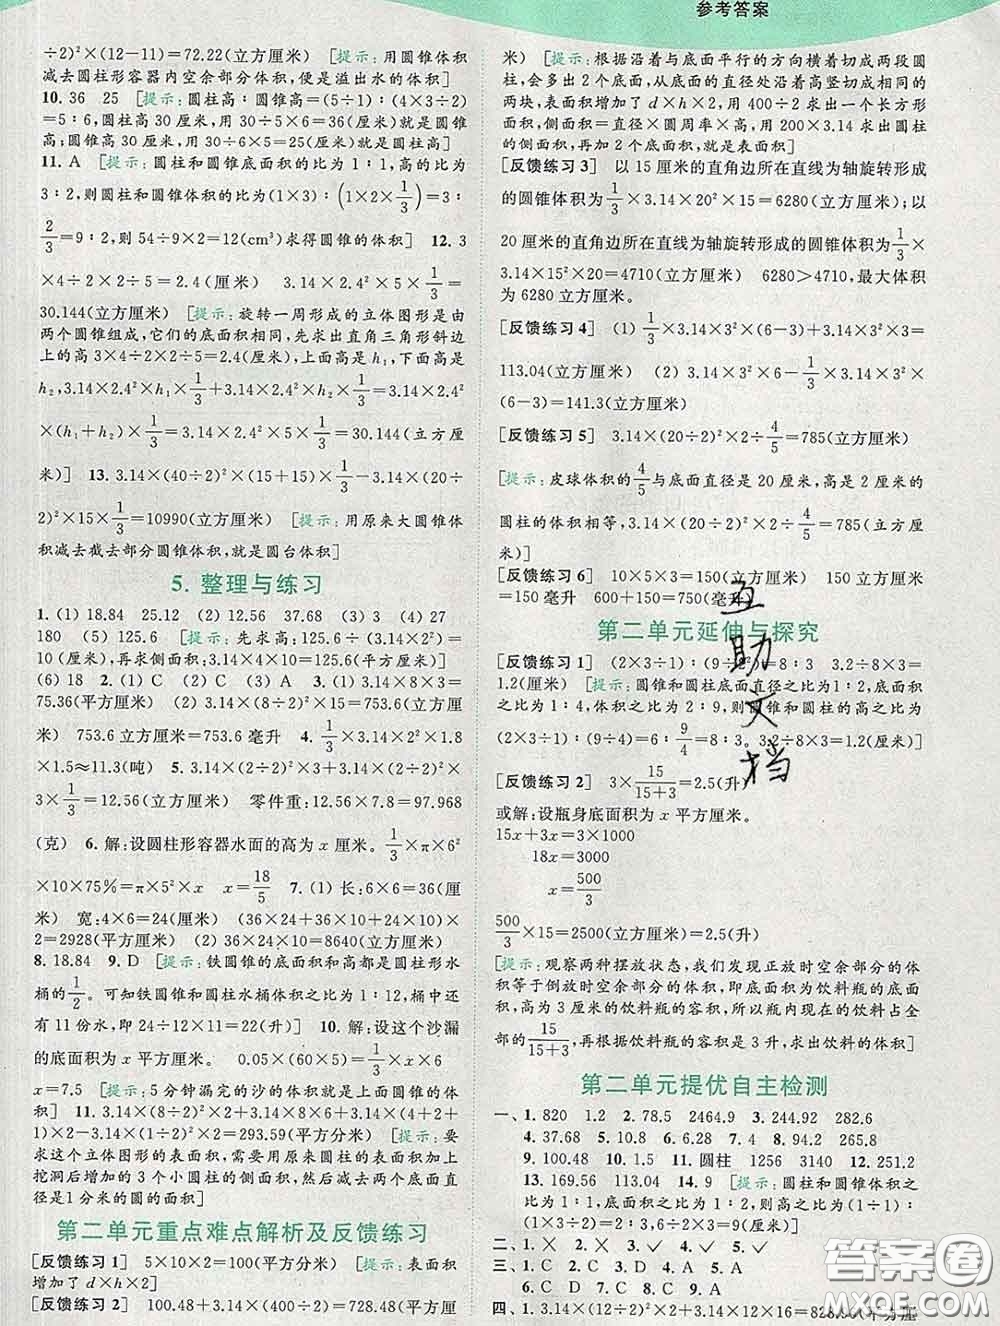 参考答案
÷2)²×(12-11)=72.22(立方厘米) [提示:用圆锥体积
减去圆柱形容器内空余部分体积,便是溢出水的体积]
10. 36 25 [提示:圆柱高:圆锥高=(5÷1):(4×3÷2)
=5:6,圆柱高30厘米,用30÷5×6=36(厘米)就是圆锥
高;圆锥高30厘米,用30÷6×5=25(厘米)就是圆柱高]
11. A [提示:圆柱和圆锥底面积的比为1:1,高的比为
3:2,则圆柱和圆锥体积的比为(1×3):(1×2×1/3)=3:
2/3=9:2,则54÷9×2=12(cm³)求得圆锥的体积] 12. 3
×4÷2×2÷5=2.4(厘米) 3.14×2.4²×5×1/3=
30.144(立方厘米) [提示:旋转一周形成的立体图形是由
两个圆锥组成,它们的底面积相等,先求出直角三角形斜边
上的高3×4÷2×2÷5=2.4(厘米),上面高是h₁,下面高是
h₂,则体积=3.14×2.4²×h₁×1/3+3.14×2.4²×h₂×1/3=3.14×2.4²
×(h₁+h₂)×1/3=3.14×2.4²×5×1/3=30.144(立方厘
米)] 13. 3.14×(40÷2)²×(15+15)×1/3-3.14×(20÷
2)²×15×1/3=10990(立方厘米) [提示:用原来大圆锥体
积减去截去部分圆锥体积,就是圆台体积]
5. 整理与练习
1. (1) 18.84 25.12 (2) 12.56 37.68 (3) 3 (4) 27
180 (5) 125.6 [提示:先求高:50.24÷[3.14×(4÷2)²÷
10(厘米),再求侧面积:3.14×4×10=125.6(平方厘米)]
(6) 18 2. (1) C (2) C (3) A 3. 3.14×8×3=
75.36(平方厘米) 3.14×(8÷2)²×15=753.6(立方厘
米) 753.6立方厘米=753.6毫升 4. 1/3×3.14×2²×1.8
×1.5≈11.3(吨) 5. 3.14×(2÷2)²×3+3.14×(2÷2)²×
3×1/3=12.56(立方厘米) 零件重:12.56×7.8=97.968
(克) 6. 解:设圆柱形容器水面的高为x厘米。1/3×π×6²
×10×75%=π×5²×x x=18/5 7. (1) 长:6×6=36(厘
米) 宽:4×6=24(厘米) (36×24+36×10+24×10)×
2=2928(平方厘米) (2) 36×24×10=8640(立方厘米)
8. 18.84 9. D [提示:铁圆锥的底面积和高都是圆柱形水
桶的1/2。可知铁圆锥和圆柱水桶体积之比为1:12,桶中还
有11份水,即24÷12×11=22(升)] 10. 解:设这个沙漏
的底面积为x平方厘米。 0.05×(60×5)=1/3×x×6
x=7.5 [提示:5分钟漏完的沙的体积就是上面圆锥的体
积] 11. 3.14×(8÷2)²×2+3.14×8×6+3.14×(4+2+
1)×2-3.14×(2÷2)²×2=293.59(平方分米) [提示:要
求这个立体图形的表面积,需要用原来圆柱的表面积加上
挖洞后增加的3个小圆柱的侧面积,然后减去2个底面直
径是1分米的圆的面积]
第二单元重点难点解析及反馈练习
[反馈练习1] 5×10×2=100(平方分米) [提示:表面积
增加了d×h×2]
[反馈练习2] 100.48+3.14×(400÷2)=728.48(平方厘
米) [提示:根据沿着与底面平行的方向横着切成两段圆
柱,会多出2个底面,从底面的直径处沿着高竖切成相同的
两块,表面积增加了d×h×2,用400÷2求出一个长方形
面积,侧面积=直径×圆周率×高,用200×3.14求出圆柱
的侧面积,再加2个底面积,就是表面积]
[反馈练习3] 以15厘米的直角边所在直线为轴旋转形成
的圆锥体积为1/3×3.14×20²×15=6280(立方厘米);以
20厘米的直角边所在直线为轴旋转形成的圆锥体积为1/3×
3.14×15²×20=4710(立方厘米) 6280>4710,最大体积
为6280立方厘米。
[反馈练习4] (1) 1/3×3.14×3²×(6-3)+3.14×3²×3=
113.04(立方厘米) (2) 3.14×3²×6-1/3×3.14×3²×
(6-3)=141.3(立方厘米)
[反馈练习5] 3.14×(20÷2)²×2÷4/5=785(立方厘米)
[提示:皮球体积的4/5与底面直径是20厘米,高是2厘米的
圆柱的体积相等,3.14×(20÷2)²×2÷4/5=785(立方厘
米)]
[反馈练习6] 10×5×3=150(立方厘米) 150立方厘米
=150毫升 600+150=750(毫升)
第二单元延伸与探究
[反馈练习1] (2×3÷1):(9÷2²)=8:3 3.2÷8×3=
1.2(厘米) [提示:圆锥和圆柱底面直径之比为1:2,底面积
之比为1:4,体积之比为2:9,则圆锥和圆柱的高之比为
(2×3÷1):(9÷4)=6:9/4=8:3。3.2÷8×3=1.2(厘米)]
[反馈练习2] 3×15/(15+3)=2.5(升)
或解:设瓶身底面积为x平方厘米。
15x+3x=3×1000
18x=3000
x=500/3
500/3×15=2500(立方厘米)=2.5(升)
[提示:观察两种摆放状态,我们发现正放时空余部分的体
积等于倒放时空余部分的体积,即底面积为饮料瓶的底面
积,高为3厘米的饮料瓶的容积,所以瓶内现在的饮料占全
部的15/(15+3),再根据饮料瓶的容积是3升,求出饮料的体积]
第二单元提优自主检测
一、1. 820 1.2 2. 78.5 2464.9 3. 244.92 282.6
4. 37.68 5. 10.8 6. 6.28 7. 4 8. 94.2 265.8
9. 100.48 10. 1.5 11. 圆柱 1256 3140 12. 251.2
13. 169.56 113.04 14. 2 [提示:圆柱和圆锥体积之比
为1:1,底面积之比为1:2,则高之比为(1÷1):
(1×3÷2)=2:3,3.6÷3×2=2.4(厘米)]
二、1. × 2. × 3. ✓ 4. ✓ 5. ✓
三、1. C 2. C 3. D 4. A 5. A
6. C 7. D 8. C 9. D
四、1. 3.14×(12÷2)²×4+3.14×12×16=828.96(平方厘
互助文档
答案圈
MXQE.COM